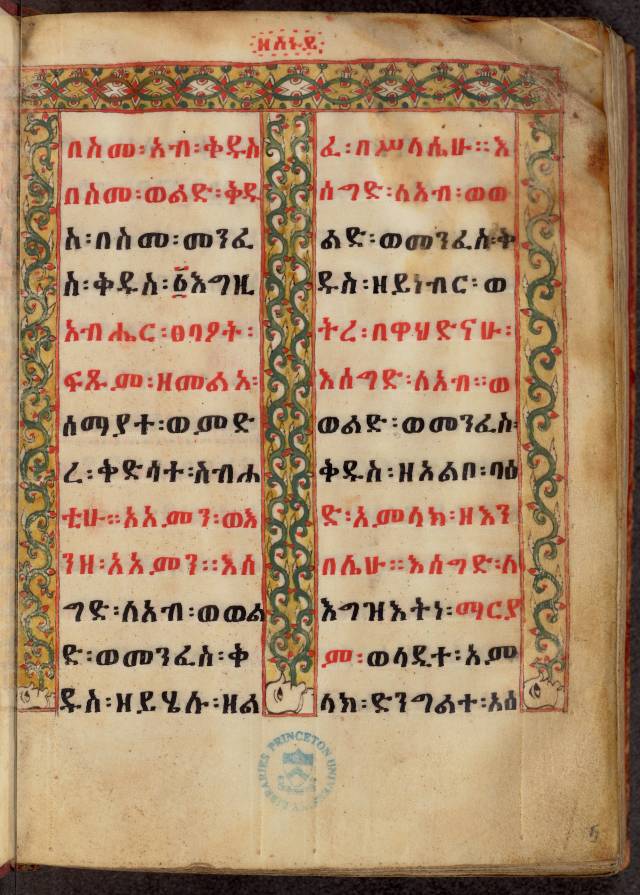 ዘሰኑይ
በስመ፡አብ፡ቅዱስ
በስመ፡ወልድ፡ቅዱ
ስ፡በስመ፡መንፈ
ስ፡ቅዱስ፡፩እግዚ
አብሔር፡ፀባዖት፡
ፍጹም፡ዘመልአ፡
ሰማያተ፡ወምድ
ረ፡ቅድሳተ፡ስብሐ
ቲሁ።አአምን፡ወእ
ንዘ፡አአምን።እሰ
ግድ፡ለአብ፡ወወል
ድ፡ወመንፈስ፡ቅ
ዱስ፡ዘይሄሉ፡ዘል
ፈ፡በሥላሴሁ።እ
ሰግድ፡ለአብ፡ወወ
ልድ፡ወመንፈስ፡ቅ
ዱስ፡ዘይነብር፡ወ
ትረ፡በዋህድናሁ፡
እሰግድ፡ለአብ።ወ
ወልድ፡ወመንፈስ፡
ቅዱስ፡ዘአልቦ፡ባዕ
ድ፡አምላክ፡ዘእን
በሌሁ።እሰግድ፡ለ
እግዝእትነ፡ማርያ
ም፡ወላዲተ፡አም
ላክ፡ድንግልተ፡አሰ
PRINCETON UNIVERSITY LIBRARIES